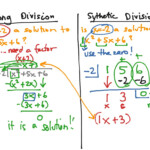 ng Division
x=-2 a solution to
x+6?
... need a factor
(x+2)
x²+5x+6
-(x²+2x)
3x+6
(3x+6)
0
it is a solution!!
Sythetic Division
x=-2 a solution to
x²+5x+6?
use the zero!
-2 1 5 6
-2 -6
1 3 0
x
(1x+3)